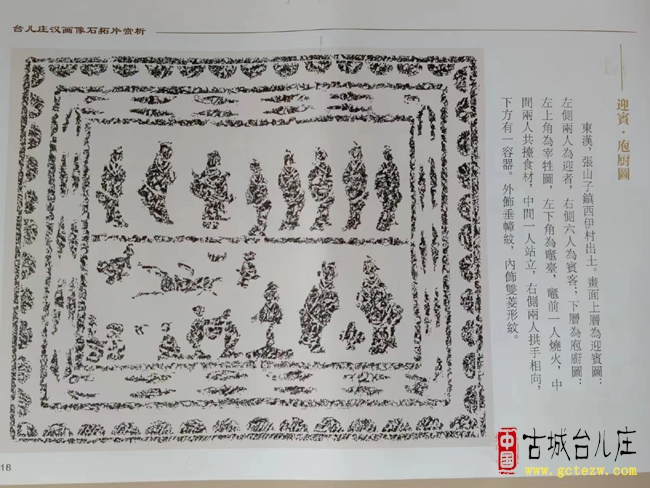 台儿庄汉画像石拓片赏析
迎賓·庖厨圖
東漢，張山子鎮西伊村出土。畫面上層為迎賓圖：
左側兩人為迎者，右側六人為賓客；下層為庖廚圖：
左上角為宰牲圖，左下角為竈臺，竈前一人燒火，中
間兩人共擡食材，中間一人站立，右側兩人拱手相向，
下方有一容器。外飾垂幛紋，內飾雙菱形紋。
18
中國
古城台儿庄
www.gctezw.com